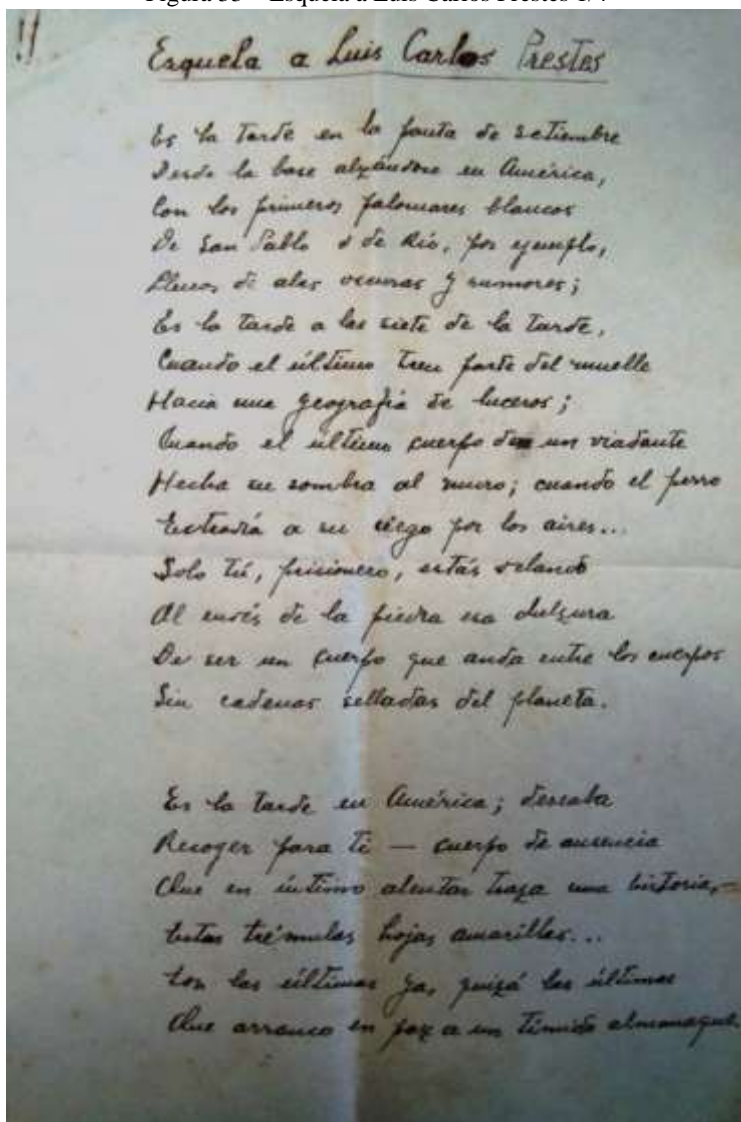 Figura 33 – Esquela a Luis Carlos Prestes 1/4
Esquela a Luis Carlos Prestes
Es la tarde en la pauta de setiembre
Desde la base alzándose en América,
Con los primeros palomares blancos
De San Pablo o de Río, por ejemplo,
Llenos de alas oscuras y rumores;
Es la tarde a las siete de la tarde,
Cuando el último tren parte del muelle
Hacia una geografía de luceros;
Cuando el último cuerpo de un viandante
Hecha su sombra al muro; cuando el perro
a su ciego por los aires...
Solo tú, prisionero, estás velando
Al envés de la piedra esa dulzura
De ser un cuerpo que anda entre los cuerpos
Sin cadenas selladas del planeta.
Es la tarde en América; deseaba
Recoger para ti — cuerpo de ausencia
Que en íntimo alentar traza una historia,—
Estas trémulas hojas amarillas...
Son las últimas ya, quizá las últimas
Que arranco en paz a un tímido almanaque.